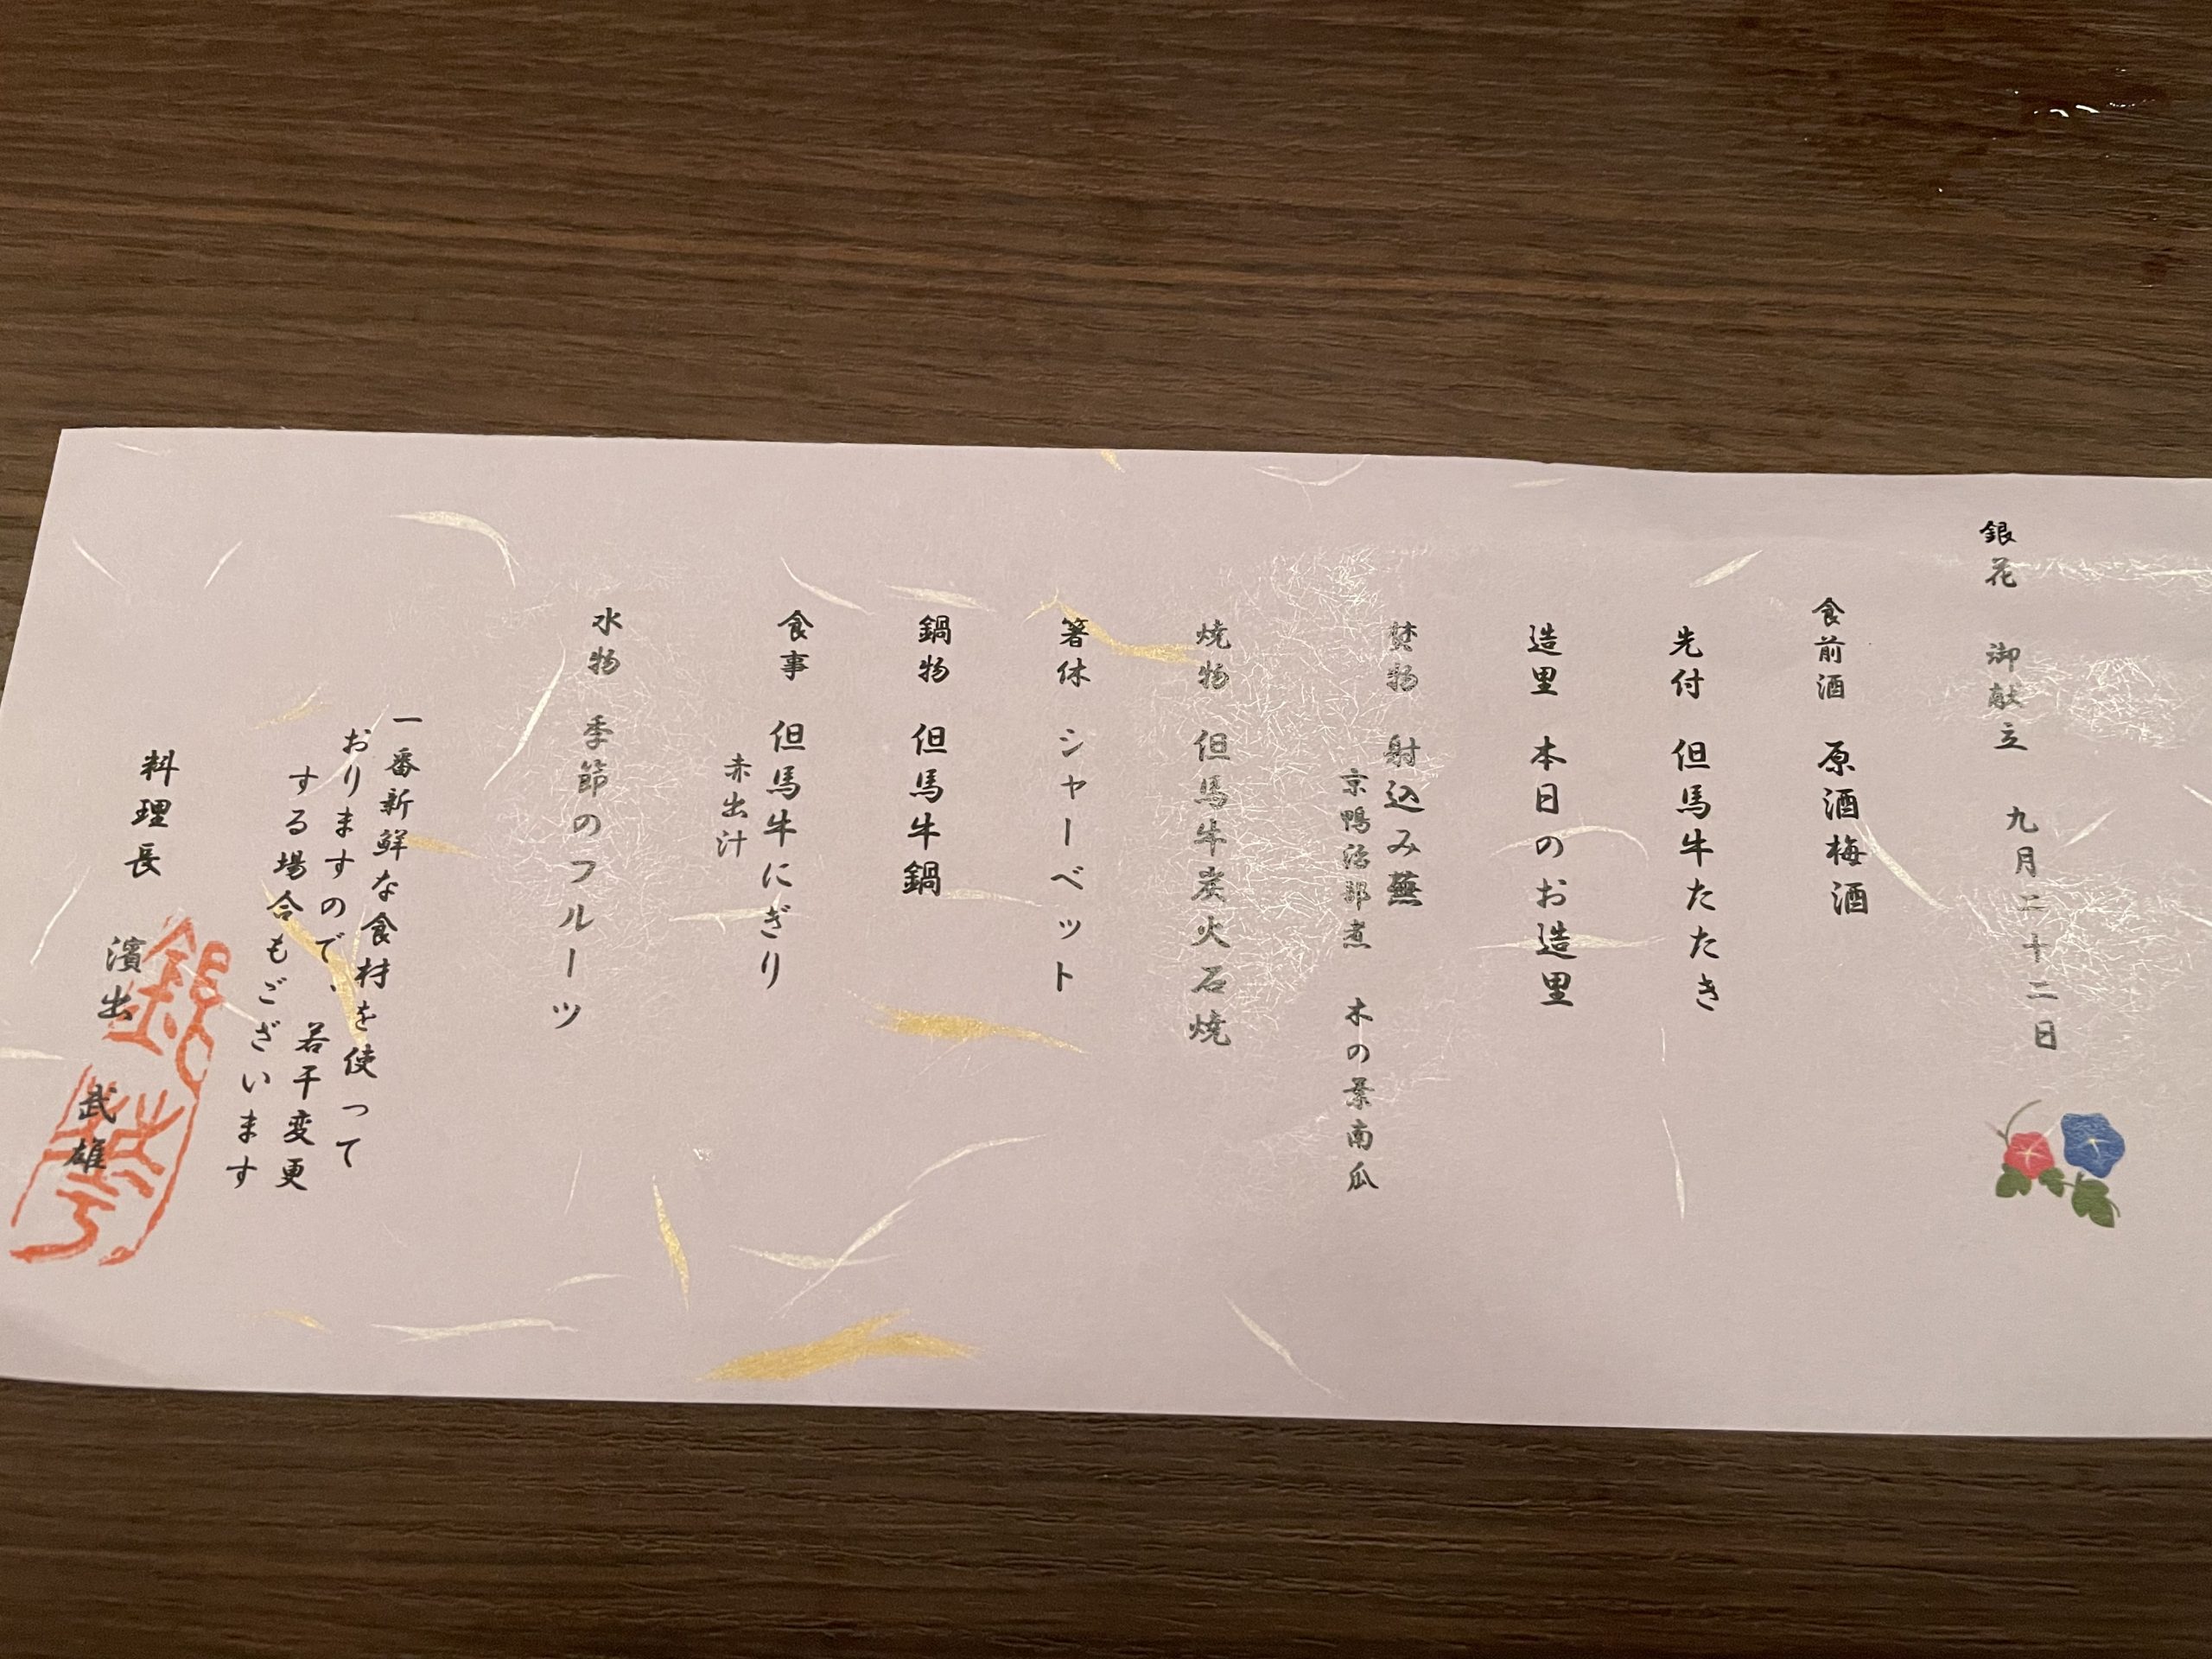 銀花 御献立 九月二十二日
食前酒 原酒梅酒
先付 但馬牛たたき
造里 本日のお造里
焚物 射込み蕪
京鴨治部煮 木の葉南瓜
焼物 但馬牛炭火石焼
箸休 シャーベット
鍋物 但馬牛鍋
食事 但馬牛にぎり
赤出汁
水物 季節のフルーツ
一番新鮮な食材を使って
おりますので、若干変更
する場合もございます
料理長 濱出 武雄
銀花